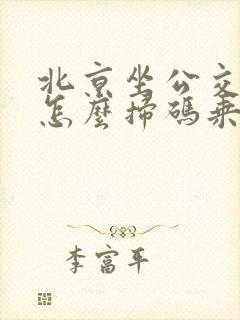 北京坐公交
怎麼掃碼乘
李富平